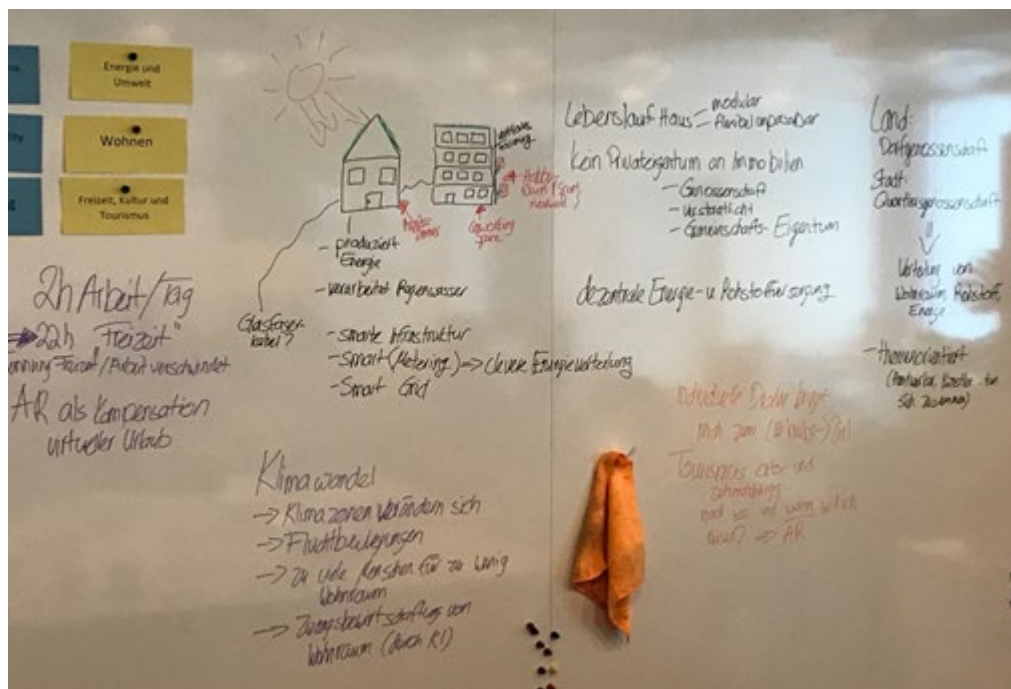 Energie und
Umwelt
Wohnen
Freizeit, Kultur und
Tourismus
2h Arbeit/Tag
22h "Freizeit"
Freizeit/Arbeit verschwindet
AR als Kompensation
virtueller Urlaub
- produziert
Energie
- verarbeitet Regenwasser
Glasfaser-
kabel?
- smarte Infrastruktur
- Smart (Metering) => clevere Energieverteilung
- Smart Grid
Klimawandel
-> Klimazonen verändern sich
-> Fluchtbewegungen
-> zu viele Menschen für zu wenig
Wohnraum
-> Zwangsbewirtschaftung von
Wohnraum (durch KI)
Lebenslauf Haus = modular
flexibel anpassbar
Kein Privateigentum an Immobilien
- Genossenschaft
- verstaatlicht
- Gemeinschafts-Eigentum
dezentrale Energie- u. Rohstoffversorgung
Individuelle
mich zum (Urlaubs-)
und
wo und wann will ich
=> AR
Land:
Dorfgenossenschaft
Stadt:
Quartiersgenossenschaft
Verteilung von
Wohnraum, Rohstoff,
Energie
- themenorientiert
Künstler tun
sich zusammen)